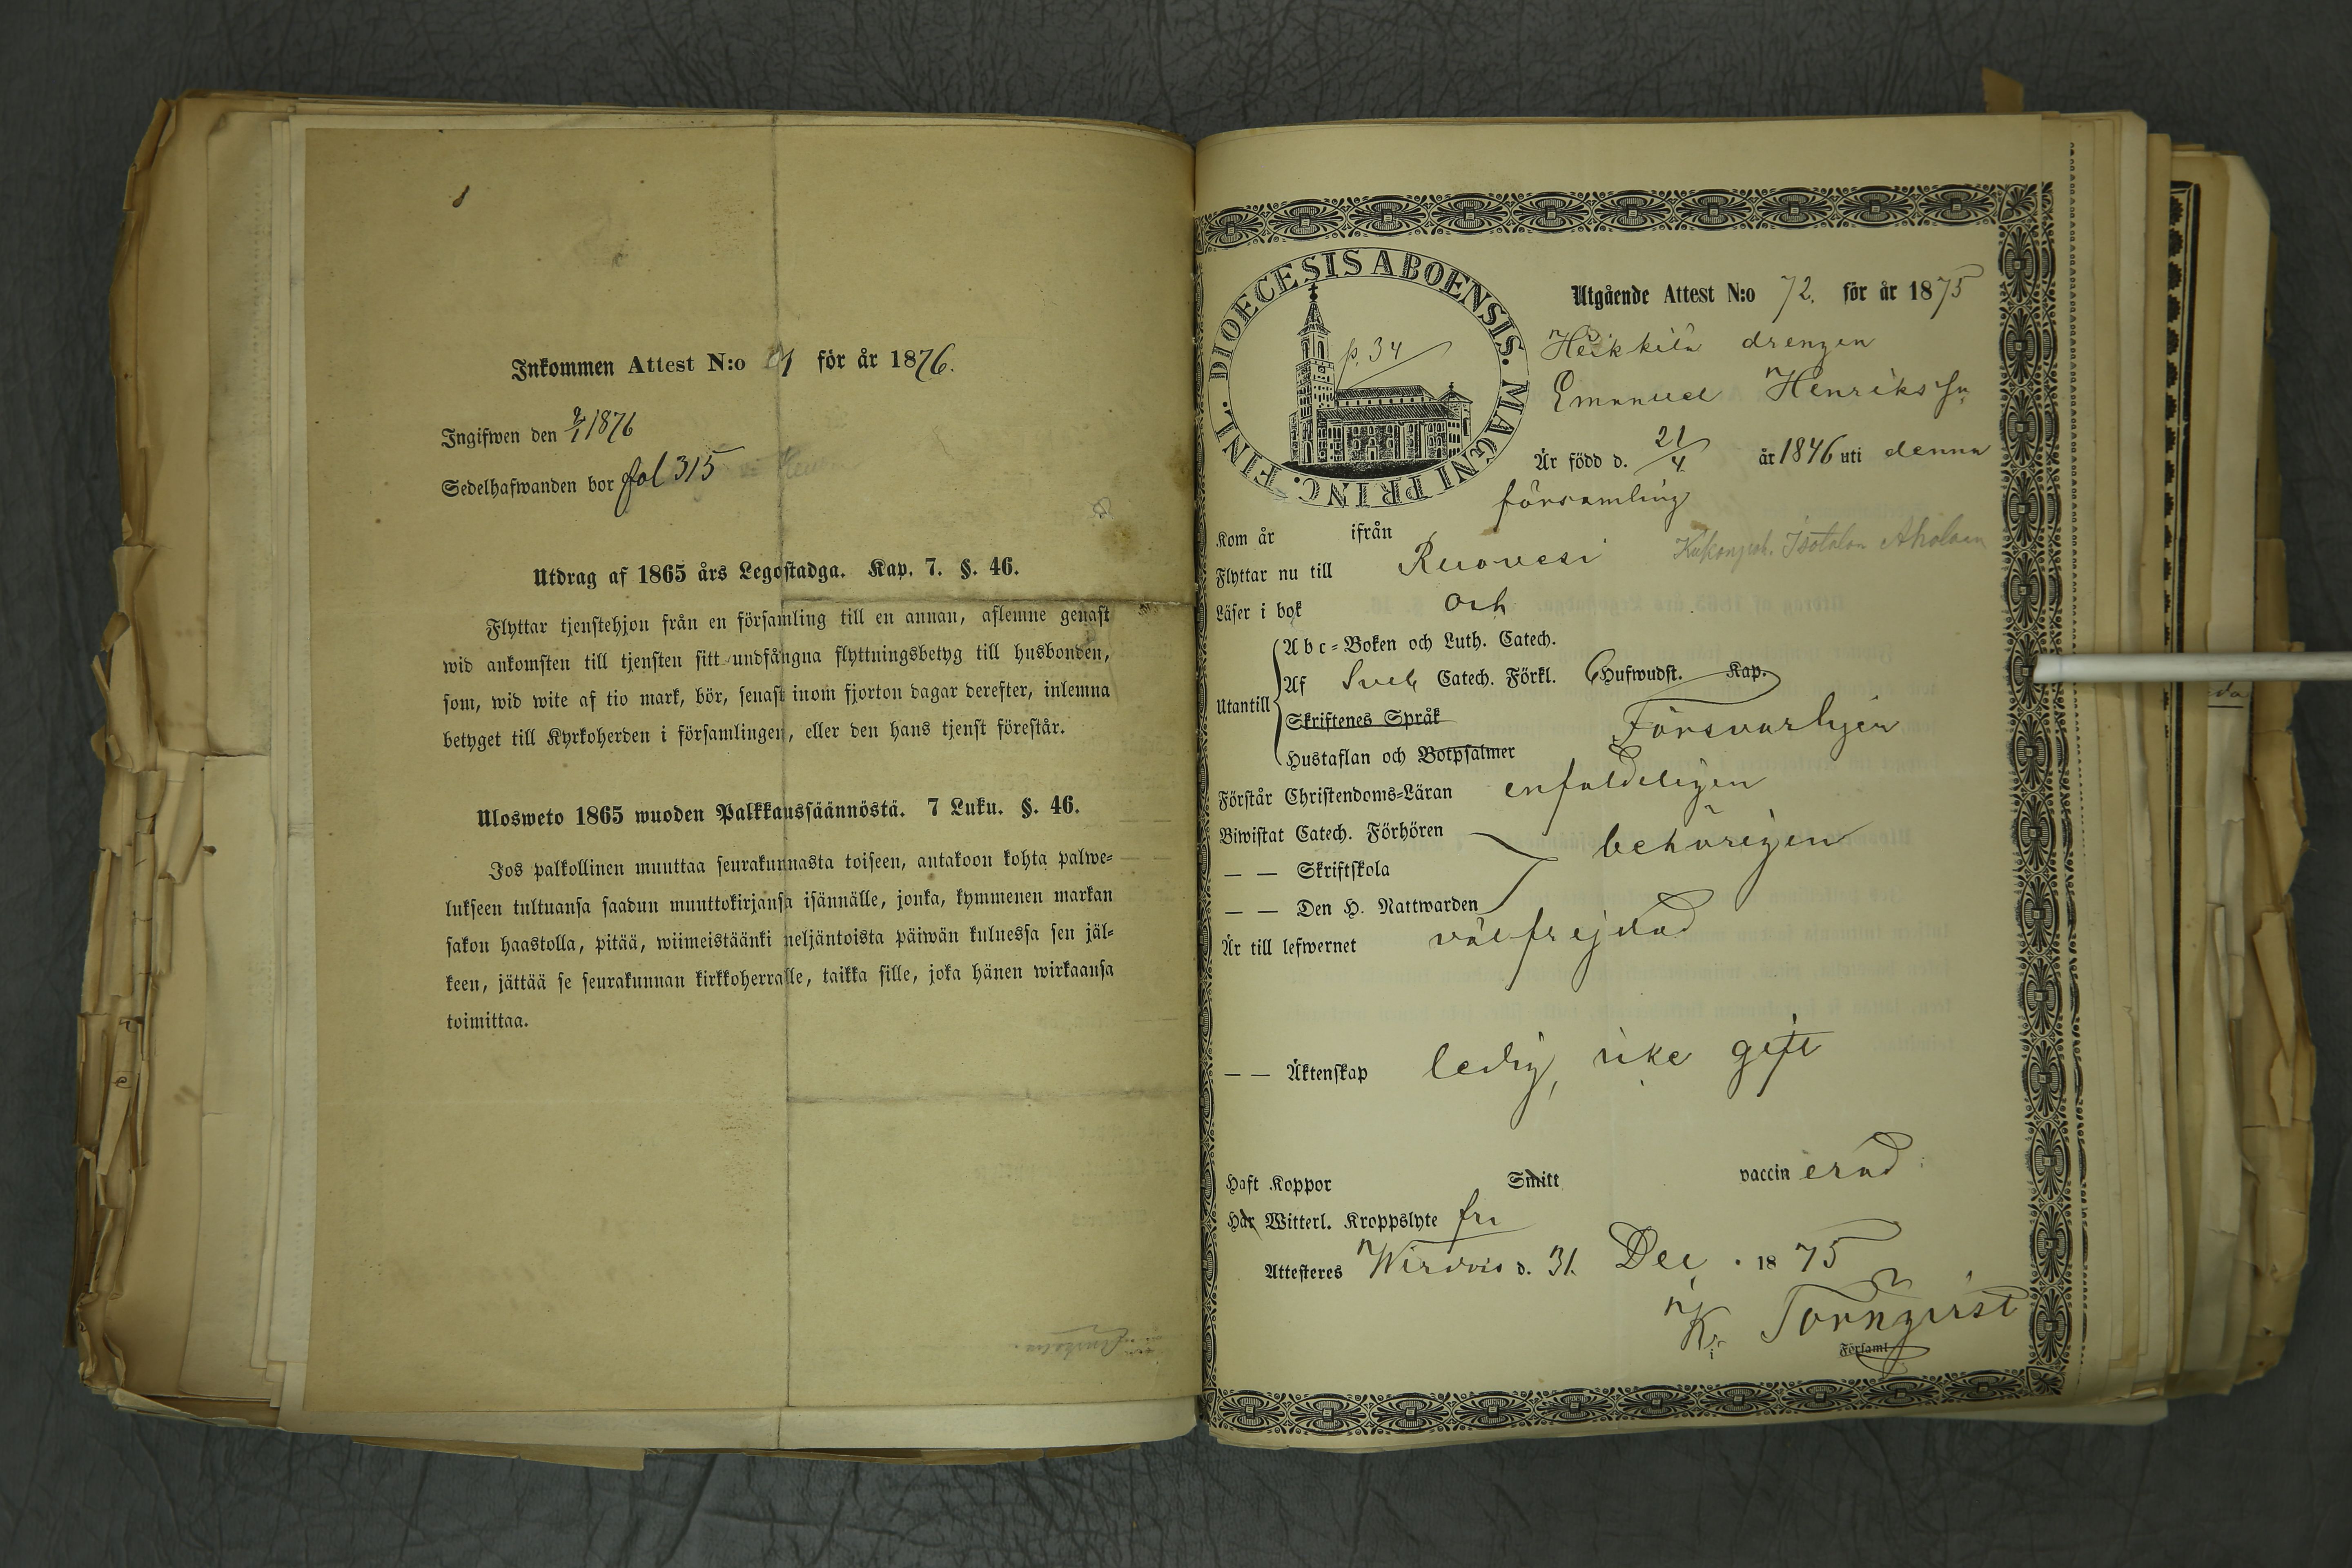 Inkommen Attest N:o för år 1876.
Ingifwen den 9/1 1876
Sedelhafwanden bor fol 315
Utdrag af 1865 års Legostadga. Kap. 7. §. 46.
Flyttar tjenstehjon från en församling till en annan, aflemne genast
wid ankomsten till tjensten sitt undfångna flyttningsbetyg till husbonden,
som, wid wite af tio mark, bör, senast inom fjorton dagar derefter, inlemna
betyget till Kyrkoherden i församlingen, eller den hans tjenst förestår.
Ulosweto 1865 wuoden Palkkaussäännöstä. 7 Luku. §. 46.
Jos palkollinen muuttaa seurakunnasta toiseen, antakoon kohta palwe-
lukseen tultuansa saadun muuttokirjansa isännälle, jonka, kymmenen markan
sakon haastolla, pitää, wiimeistäänki neljäntoista päiwän kuluessa sen jäl-
keen, jättää se seurakunnan kirkkoherralle, taikka sille, joka hänen wirkaansa
toimittaa.
DIOECESIS ABOENSIS. MAGNI PRINC. FINL.
p. 34
Utgående Attest N:o 72. för år 1875
Heikkilä drengen
Emanuel Henriksson
Är född d. 21/4 år 1846 uti denna
församling
Kom år ifrån
Flyttar nu till Ruovesi
Läser i bok och
Utantill
Abc-Boken och Luth. Catech.
Af Sveb. Catech. Förkl. 6 Hufwudst. Kap.
Skriftenes Språk
Försvarligen
Hustaflan och Botpsalmer
Förstår Christendoms-Läran enfaldeligen
Biwistat Catech. Förhören
behörigen
— — Skriftskola
— — Den H. Nattwarden
Är till lefwernet välfrejdad
— — Äktenskap ledig, icke gift
Haft Koppor Smitt vaccinerad
Har Witterl. Kroppslyte fri
Attesteres Wirdois d. 31. Dec. 1875
K. Törnqvist
Församl.